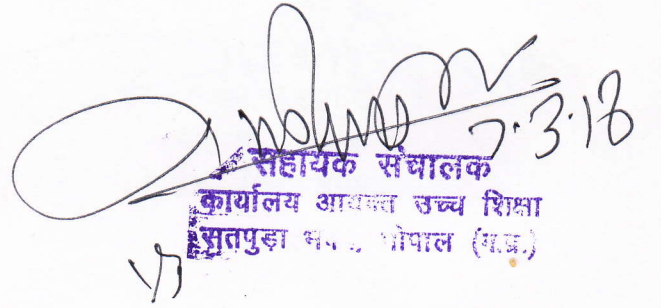 7.3.18
सहायक संचालक
कार्यालय आयुक्त उच्च शिक्षा
सतपुड़ा भवन, भोपाल (म.प्र.)